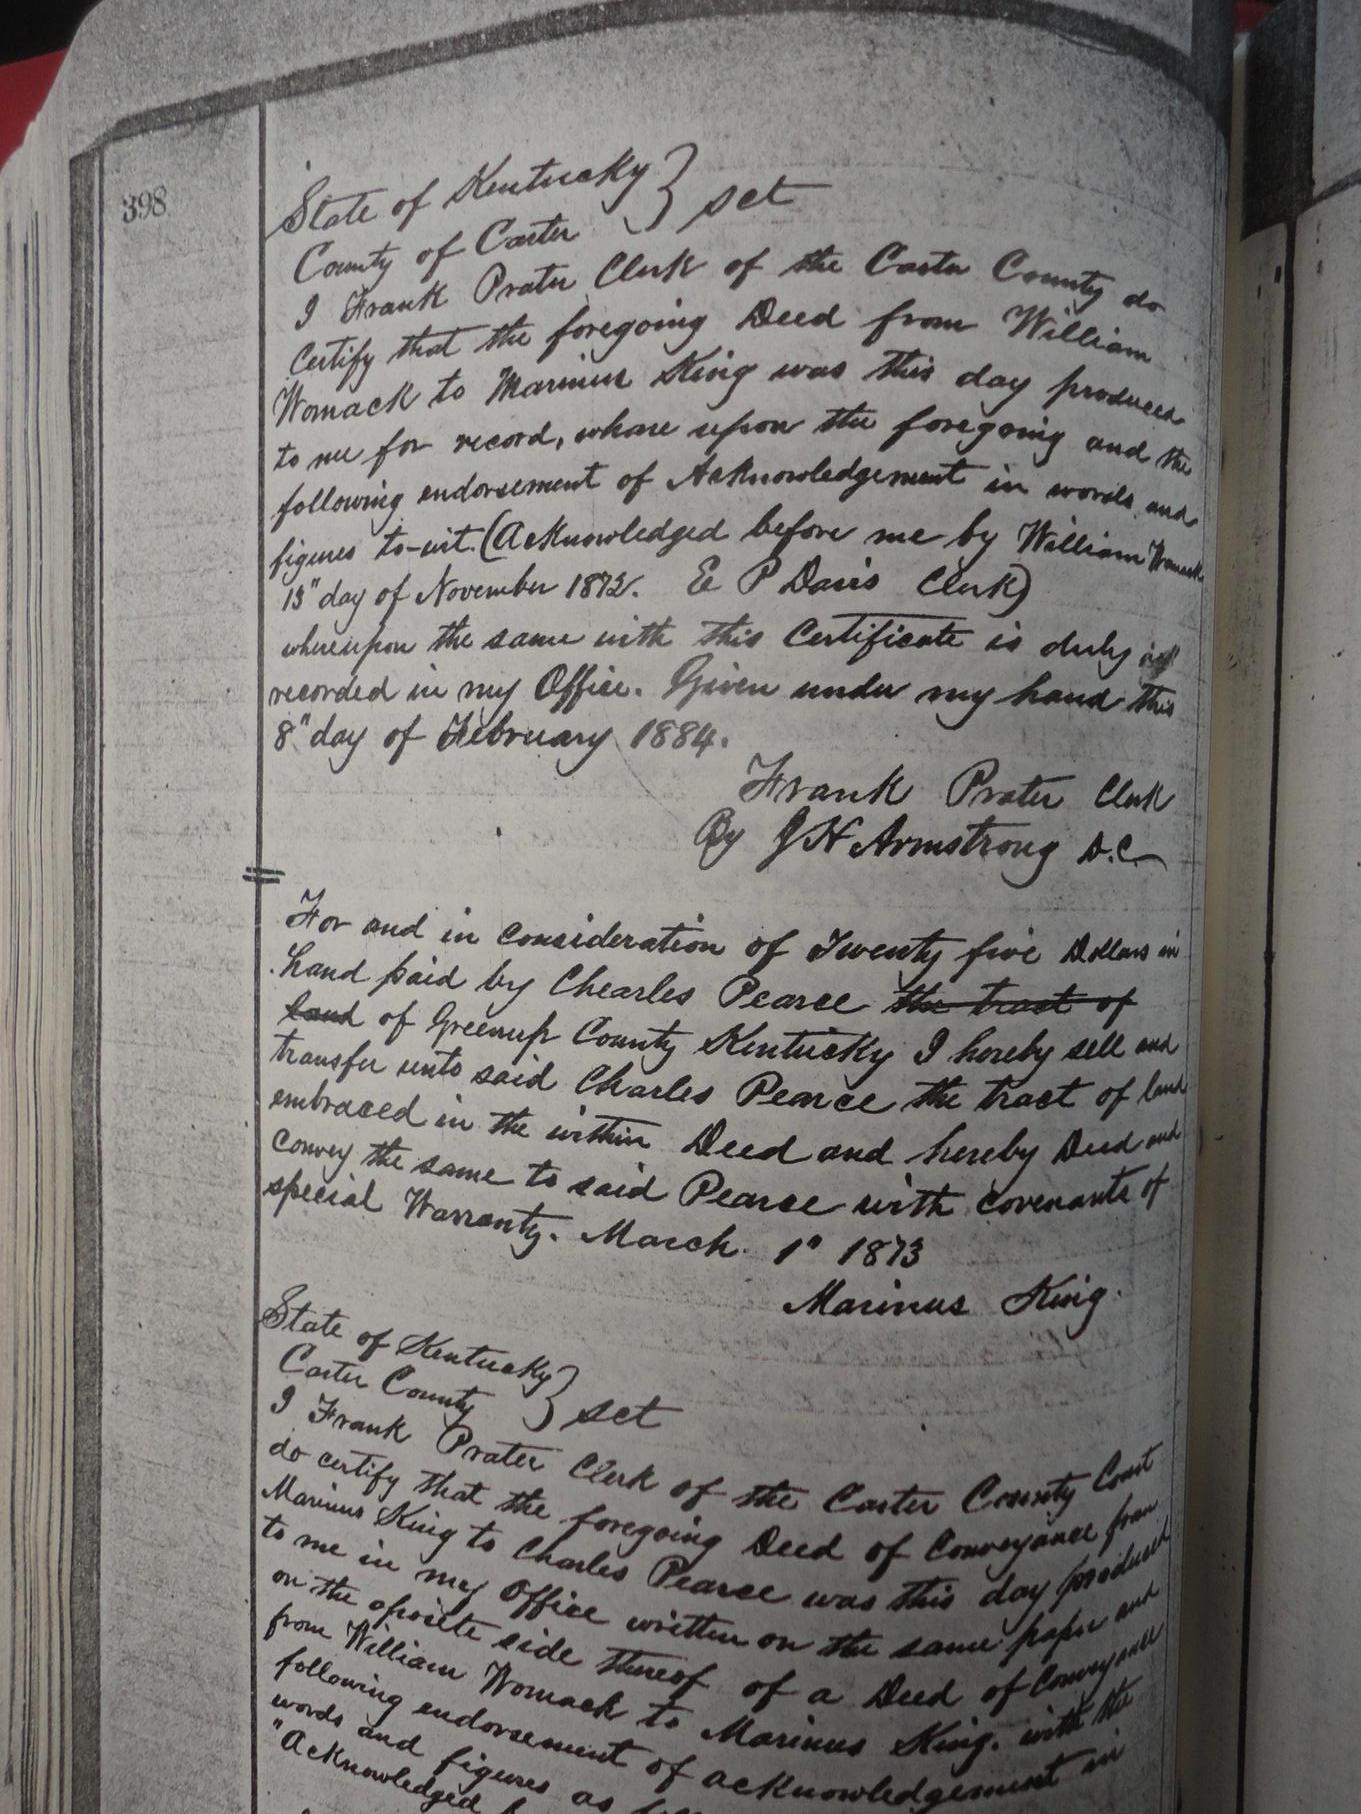 398
State of Kentucky } sct
County of Carter
I Frank Prater Clerk of the Carter County do
certify that the foregoing Deed from William
Womack to Marinus King was this day produced
to me for record, whare upon the foregoing and the
following endorsement of Acknowledgement in words and
figures to-wit. (Acknowledged before me by William Womack
13" day of November 1872. E P Davis Clerk)
whereupon the same with this Certificate is duly
recorded in my Office. Given under my hand this
8" day of February 1884.
Frank Prater Clerk
By J H Armstrong D.C.
For and in consideration of Twenty five Dollars in
hand paid by Chearles Pearce the tract of
land of Greenup County Kentucky I hereby sell and
transfer unto said Charles Pearce the tract of land
embraced in the within Deed and hereby Deed and
convey the same to said Pearce with covenants of
special Warranty. March 1" 1873
Marinus King.
State of Kentucky } sct
Carter County
I Frank Prater Clerk of the Carter County Court
do certify that the foregoing Deed of Conveyance from
Marinus King to Charles Pearce was this day produced
to me in my Office written on the same paper and
on the oposite side thereof of a Deed of Conveyance
from William Womack to Marinus King. with the
following endorsement of acknowledgement in
words and figures as
"Acknowledged